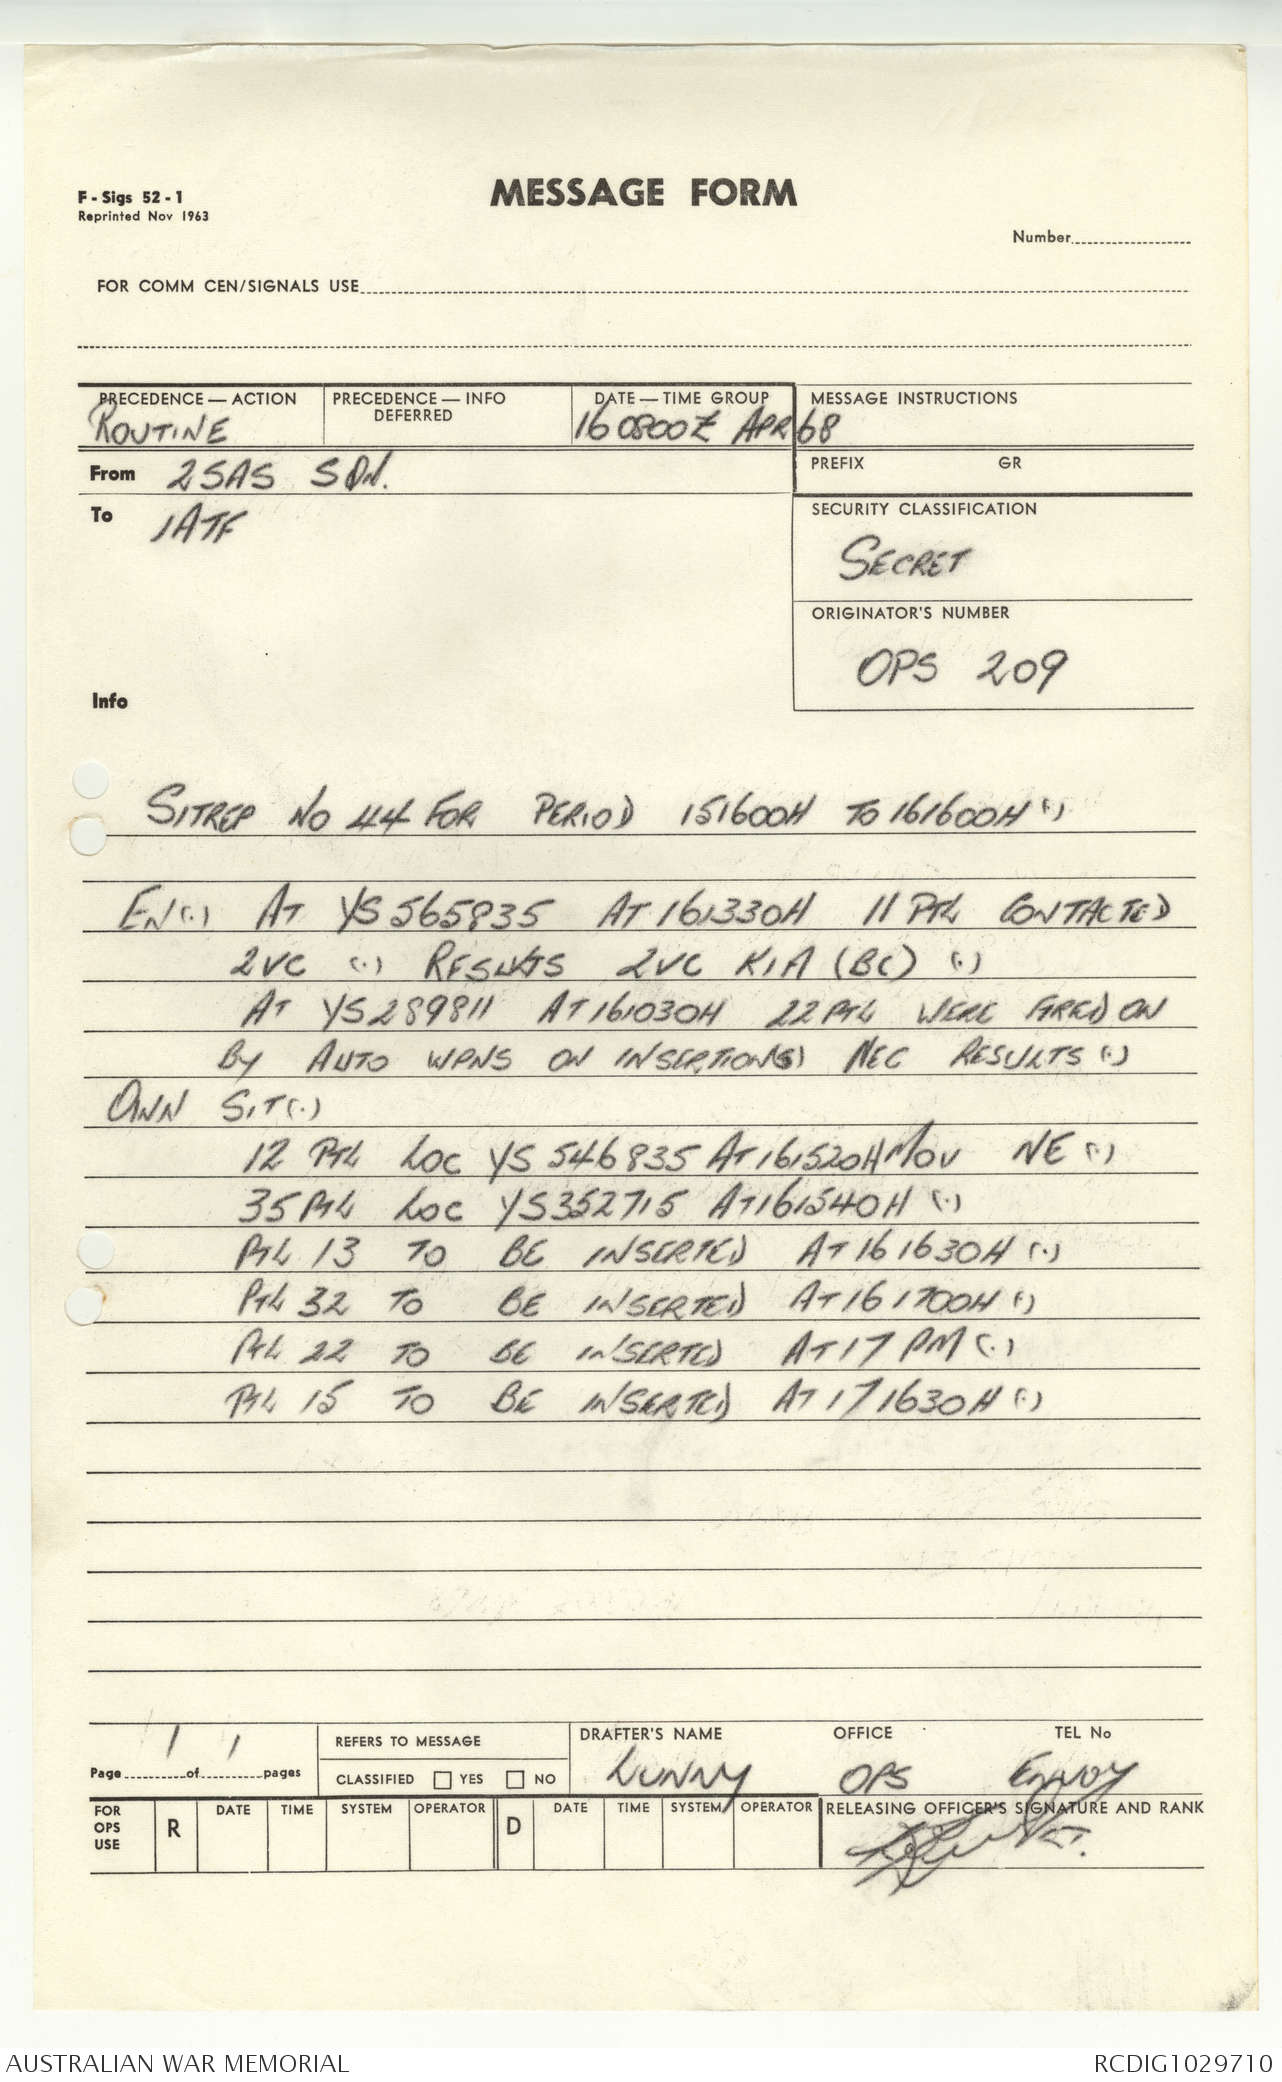 F - Sigs 52 - 1
Reprinted Nov 1963
MESSAGE FORM
Number
FOR COMM CEN/SIGNALS USE
PRECEDENCE — ACTION
ROUTINE
PRECEDENCE — INFO
DEFERRED
DATE — TIME GROUP
160800Z APR 68
MESSAGE INSTRUCTIONS
From 2SAS SQN.
PREFIX GR
To 1ATF
SECURITY CLASSIFICATION
SECRET
ORIGINATOR'S NUMBER
OPS 209
Info
SITREP NO 44 FOR PERIOD 151600H TO 161600H (.)
EN (.) AT YS 565835 AT 161330H 11 PTL CONTACTED
2VC (.) RESULTS 2VC KIA (BC) (.)
AT YS289811 AT 161030H 22 PTL WERE FIRED ON
BY AUTO WPNS ON INSERTION(S) NEG RESULTS (.)
OWN SIT (.)
12 PTL LOC YS 546835 AT 161520H MOV NE (.)
35 PTL LOC YS352715 AT 161540H (.)
PTL 13 TO BE INSERTED AT 161630H (.)
PTL 32 TO BE INSERTED AT 161700H (.)
PTL 22 TO BE INSERTED AT 17 PM (.)
PTL 15 TO BE INSERTED AT 171630H (.)
Page 1 of 1 pages
REFERS TO MESSAGE
CLASSIFIED YES NO
DRAFTER'S NAME OFFICE TEL No
LUNNY OPS ENVOY
FOR OPS USE R DATE TIME SYSTEM OPERATOR D DATE TIME SYSTEM OPERATOR RELEASING OFFICER'S SIGNATURE AND RANK
AUSTRALIAN WAR MEMORIAL
RCDIG1029710